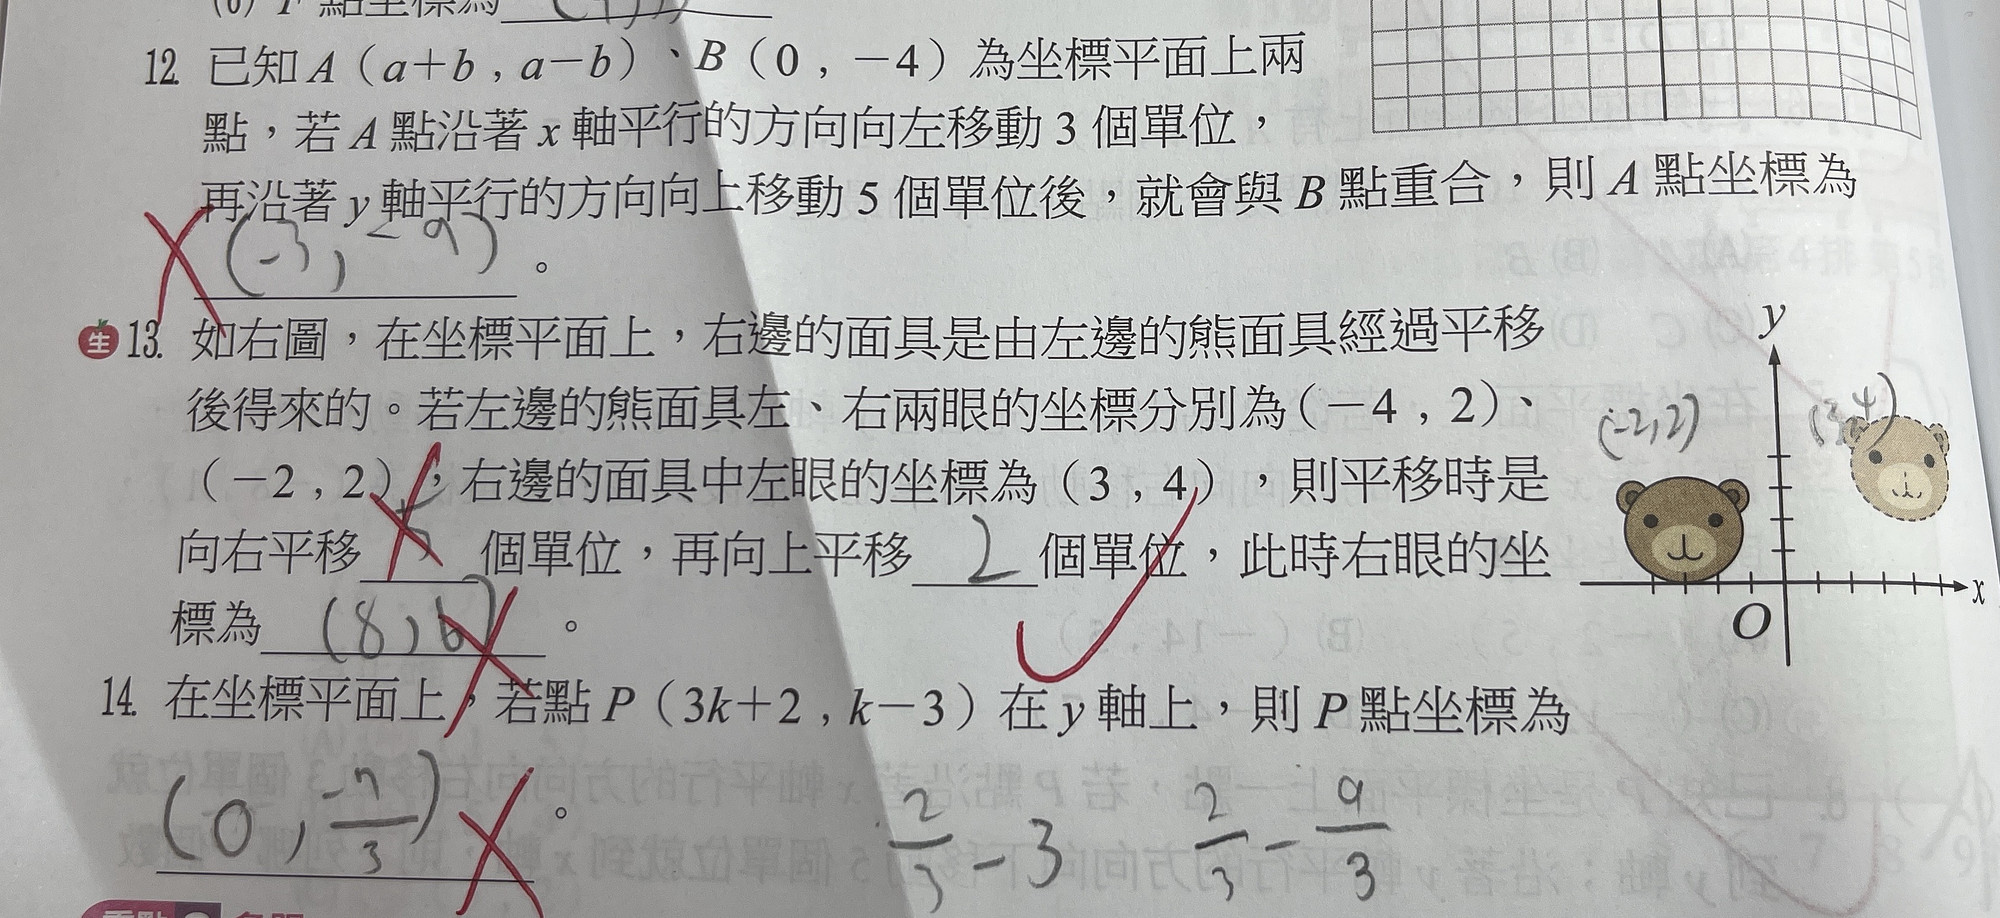 點坐標為
12. 已知 A（a＋b , a－b）、B（0 , －4）為坐標平面上兩
點，若 A 點沿著 x 軸平行的方向向左移動 3 個單位，
再沿著 y 軸平行的方向向上移動 5 個單位後，就會與 B 點重合，則 A 點坐標為
(-3, -9) 。
生 13. 如右圖，在坐標平面上，右邊的面具是由左邊的熊面具經過平移
後得來的。若左邊的熊面具左、右兩眼的坐標分別為（－4 , 2）、
（－2 , 2），右邊的面具中左眼的坐標為（3 , 4），則平移時是
向右平移 5 個單位，再向上平移 2 個單位，此時右眼的坐
標為 (8, 6) 。
y
(-2,2) (3,4)
x
O
14. 在坐標平面上，若點 P（3k＋2 , k－3）在 y 軸上，則 P 點坐標為
(0, -7/3) 。
2/3 - 3 2/3 - 9/3